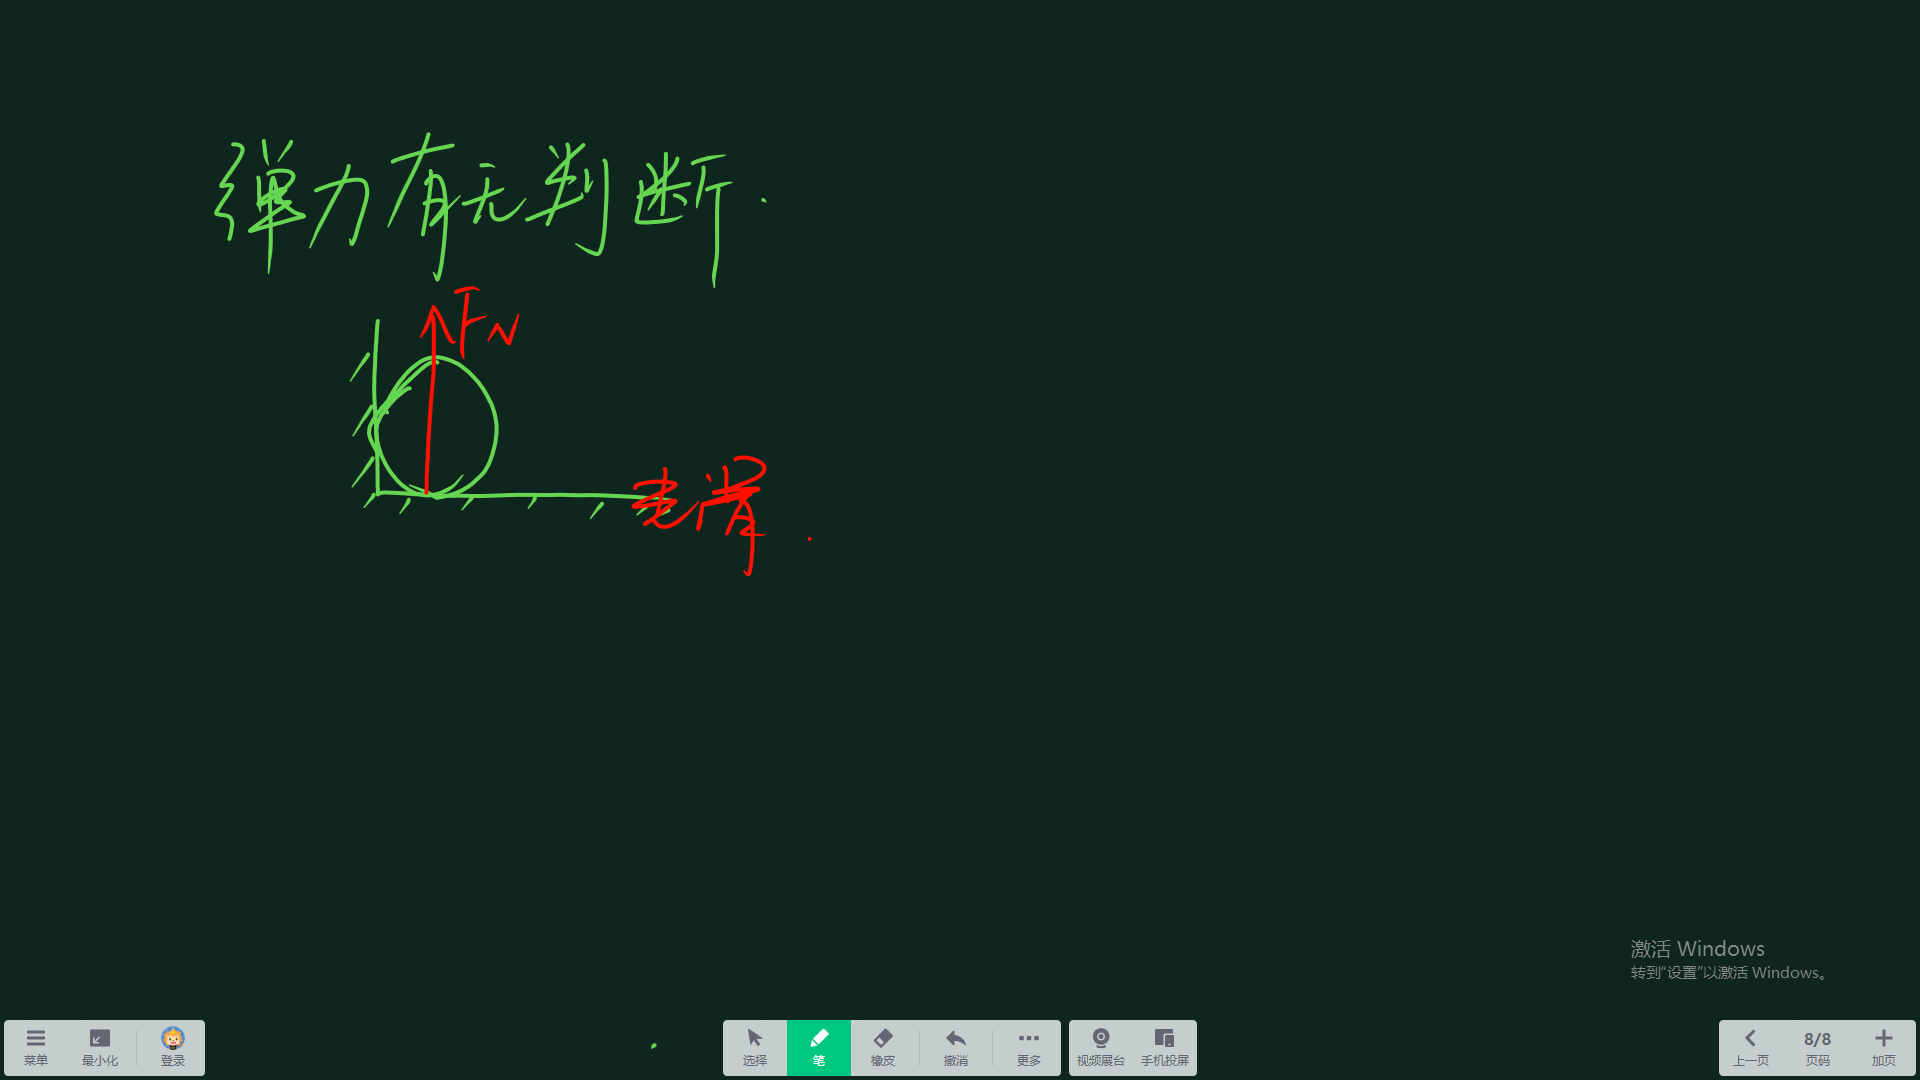 弹力有无判断.
FN
光滑.
激活 Windows
转到"设置"以激活 Windows。
菜单
最小化
登录
选择
笔
橡皮
撤消
更多
视频展台
手机投屏
上一页
8/8
页码
加页